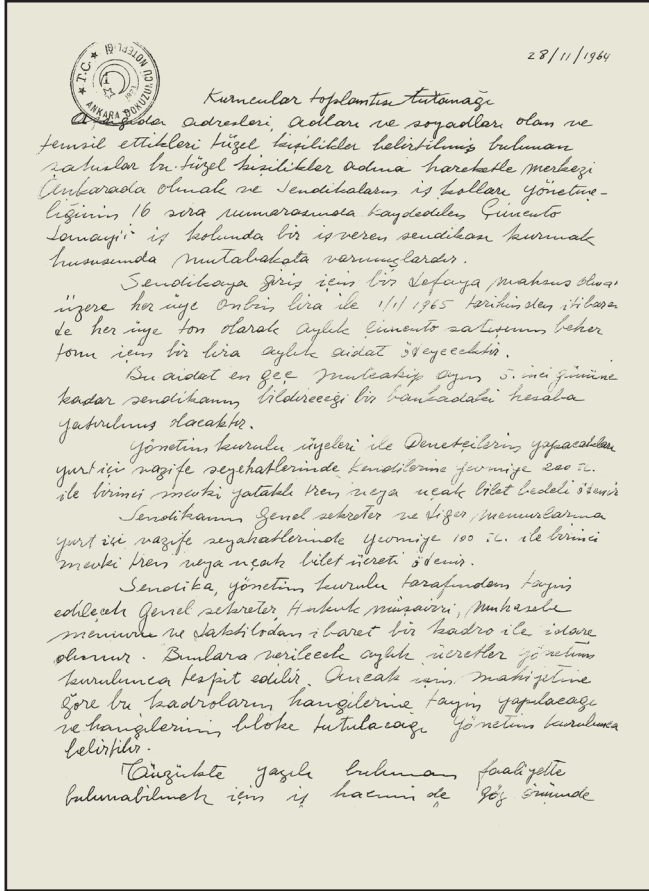 28/11/1964
T.C. ANKARA DOKUZUNCU NOTERLİĞİ
Kurucular toplantısı tutanağı
Aşağıda adresleri, adları ve soyadları olan ve
temsil ettikleri tüzel kişilikler belirtilmiş bulunan
şahıslar bu tüzel kişilikler adına hareketle merkezi
Ankarada olmak ve Sendikaların iş kolları yönetme-
liğinin 16 sıra numarasında kaydedilen Çimento
Sanayii iş kolunda bir işveren sendikası kurmak
hususunda mutabakata varmışlardır.
Sendikaya giriş için bir defaya mahsus olmak
üzere her üye onbin lira ile 1/1/1965 tarihinden itibaren
de her üye ton olarak aylık çimento satışının beher
tonu için bir lira aylık aidat ödeyecektir.
Bu aidat en geç müteakip ayın 5. inci gününe
kadar sendikanın bildireceği bir bankadaki hesaba
yatırılmış olacaktır.
Yönetim kurulu üyeleri ile Denetçilerin yapacakları
yurt içi vazife seyahatlerinde kendilerine yevmiye 200 TL.
ile birinci mevki yataklı tren veya uçak bilet bedeli ödenir
Sendikanın Genel sekreter ve diğer memurlarına
yurt içi vazife seyahatlerinde yevmiye 100 TL. ile birinci
mevki tren veya uçak bilet ücreti ödenir.
Sendika, yönetim kurulu tarafından tayin
edilecek Genel sekreter, Hukuk müşaviri, Muhasebe
memuru ve daktilodan ibaret bir kadro ile idare
olunur. Bunlara verilecek aylık ücretler yönetim
kurulunca tespit edilir. Ancak işin mahiyetine
göre bu kadroların hangilerine tayin yapılacağı
ve hangilerinin bloke tutulacağı yönetim kurulunca
belirtilir.
Tüzükte yazılı bulunan faaliyette
bulunabilmek için iş hacmini de göz önünde